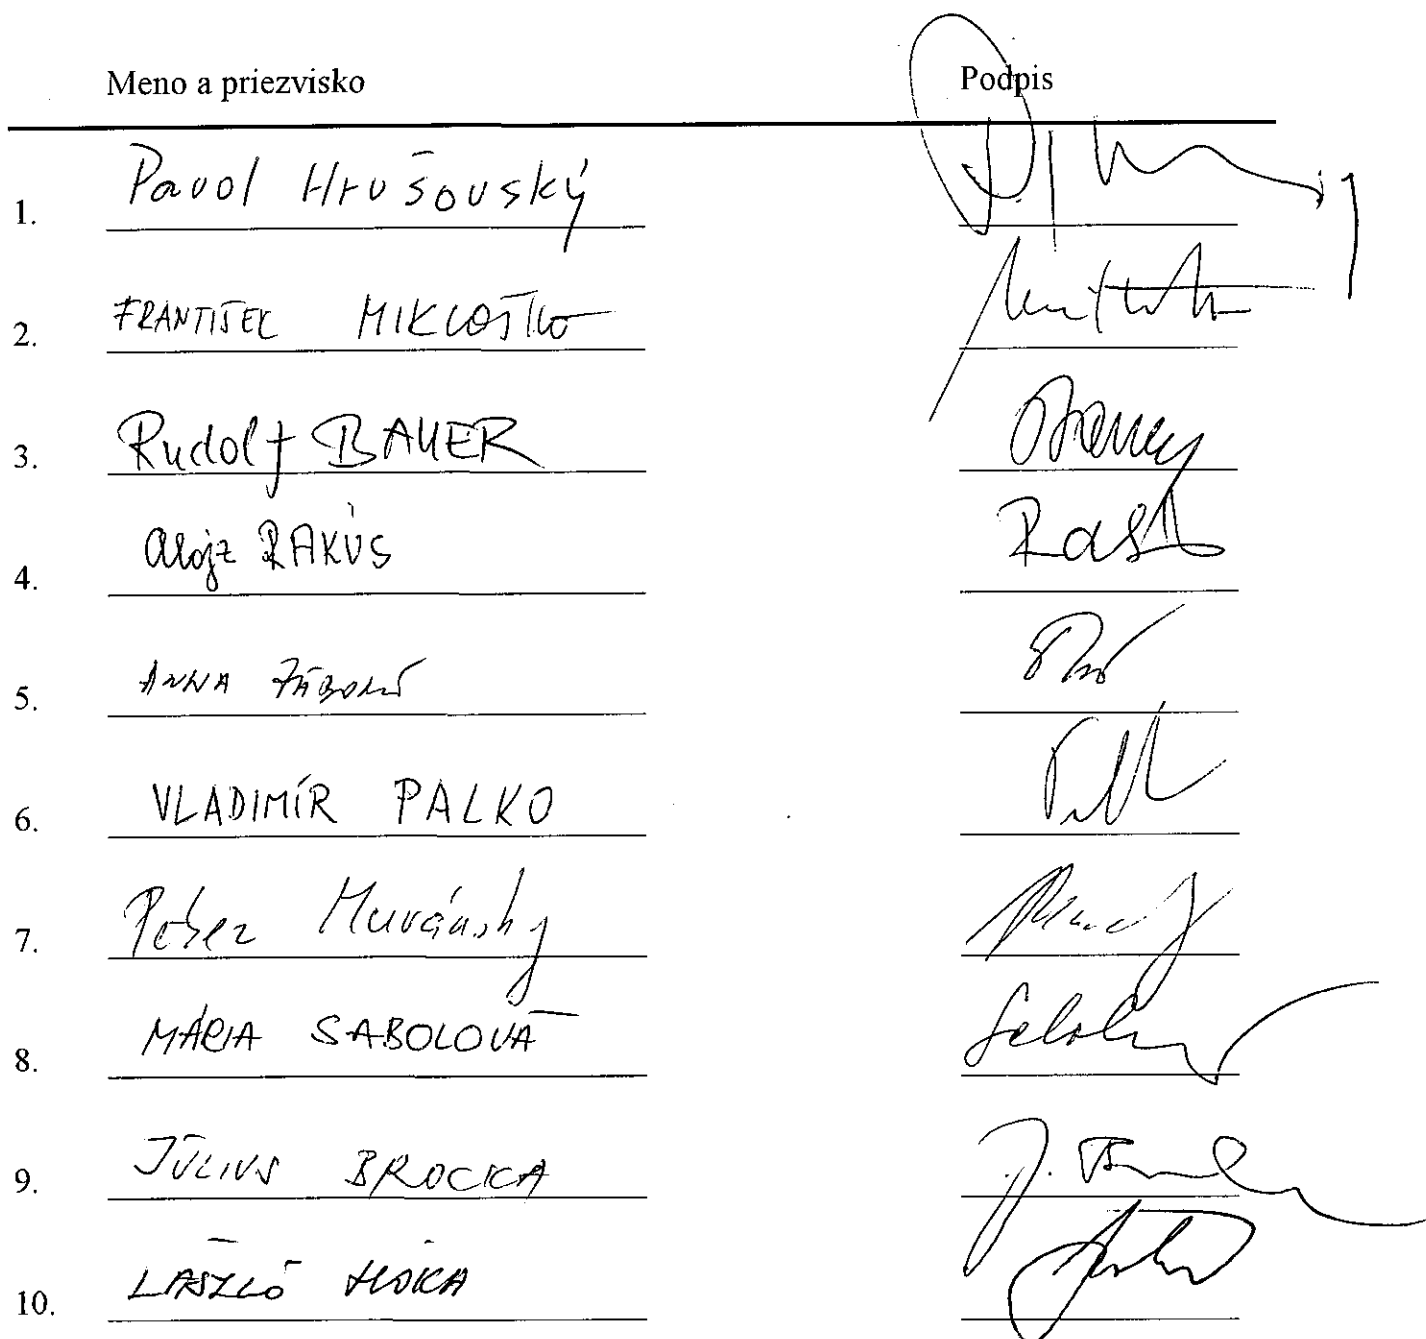 Meno a priezvisko Podpis
1. Pavol Hrušovský
2. FRANTIŠEK MIKLOŠKO
3. Rudolf BAUER
4. Alojz RAKÚS
5. ANNA ZÁBORSKÁ
6. VLADIMÍR PALKO
7. Peter Muránsky
8. MÁRIA SABOLOVÁ
9. JÚLIUS BROCKA
10. LÁSZLÓ HÓKA